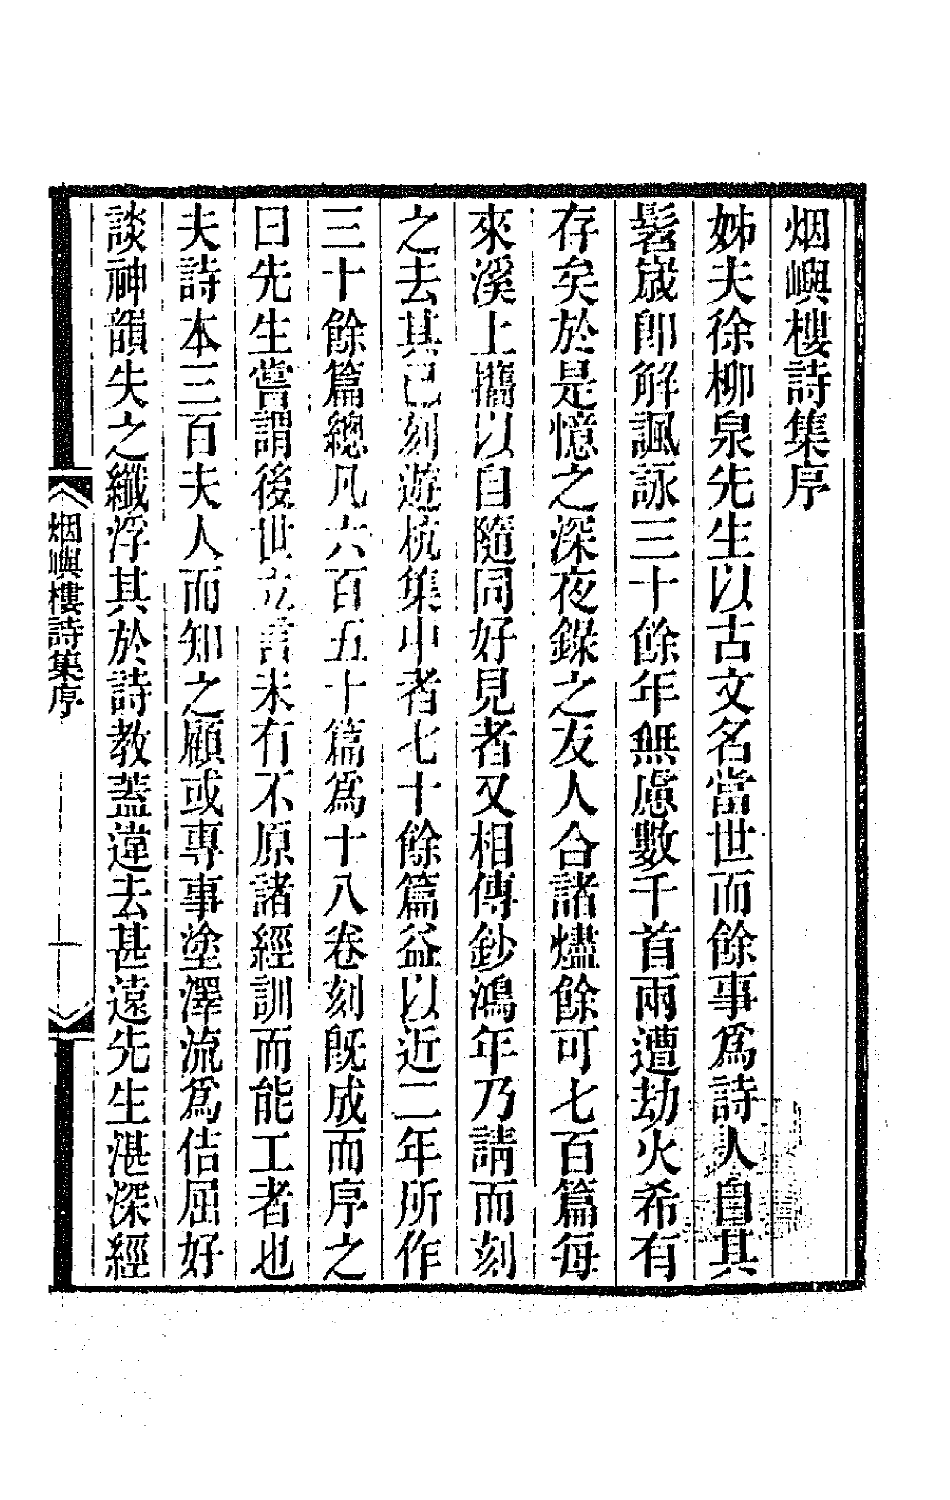 烟嶼樓詩集序
姊夫徐柳泉先生以古文名當世而餘事爲詩人自其
髫歲卽解諷詠三十餘年無慮數千首兩遭劫火希有
存矣於是憶之深夜錄之友人合諸燼餘可七百篇每
來溪上攜以自隨同好見者又相傳鈔鴻年乃請而刻
之去其已刻遊杭集中者七十餘篇益以近二年所作
三十餘篇總凡六百五十篇爲十八卷刻旣成而序之
曰先生嘗謂後世立言未有不原諸經訓而能工者也
夫詩本三百夫人而知之顧或專事塗澤流爲佶屈好
談神韻失之纖浮其於詩教蓋違去甚遠先生湛深經
烟嶼樓詩集序
一